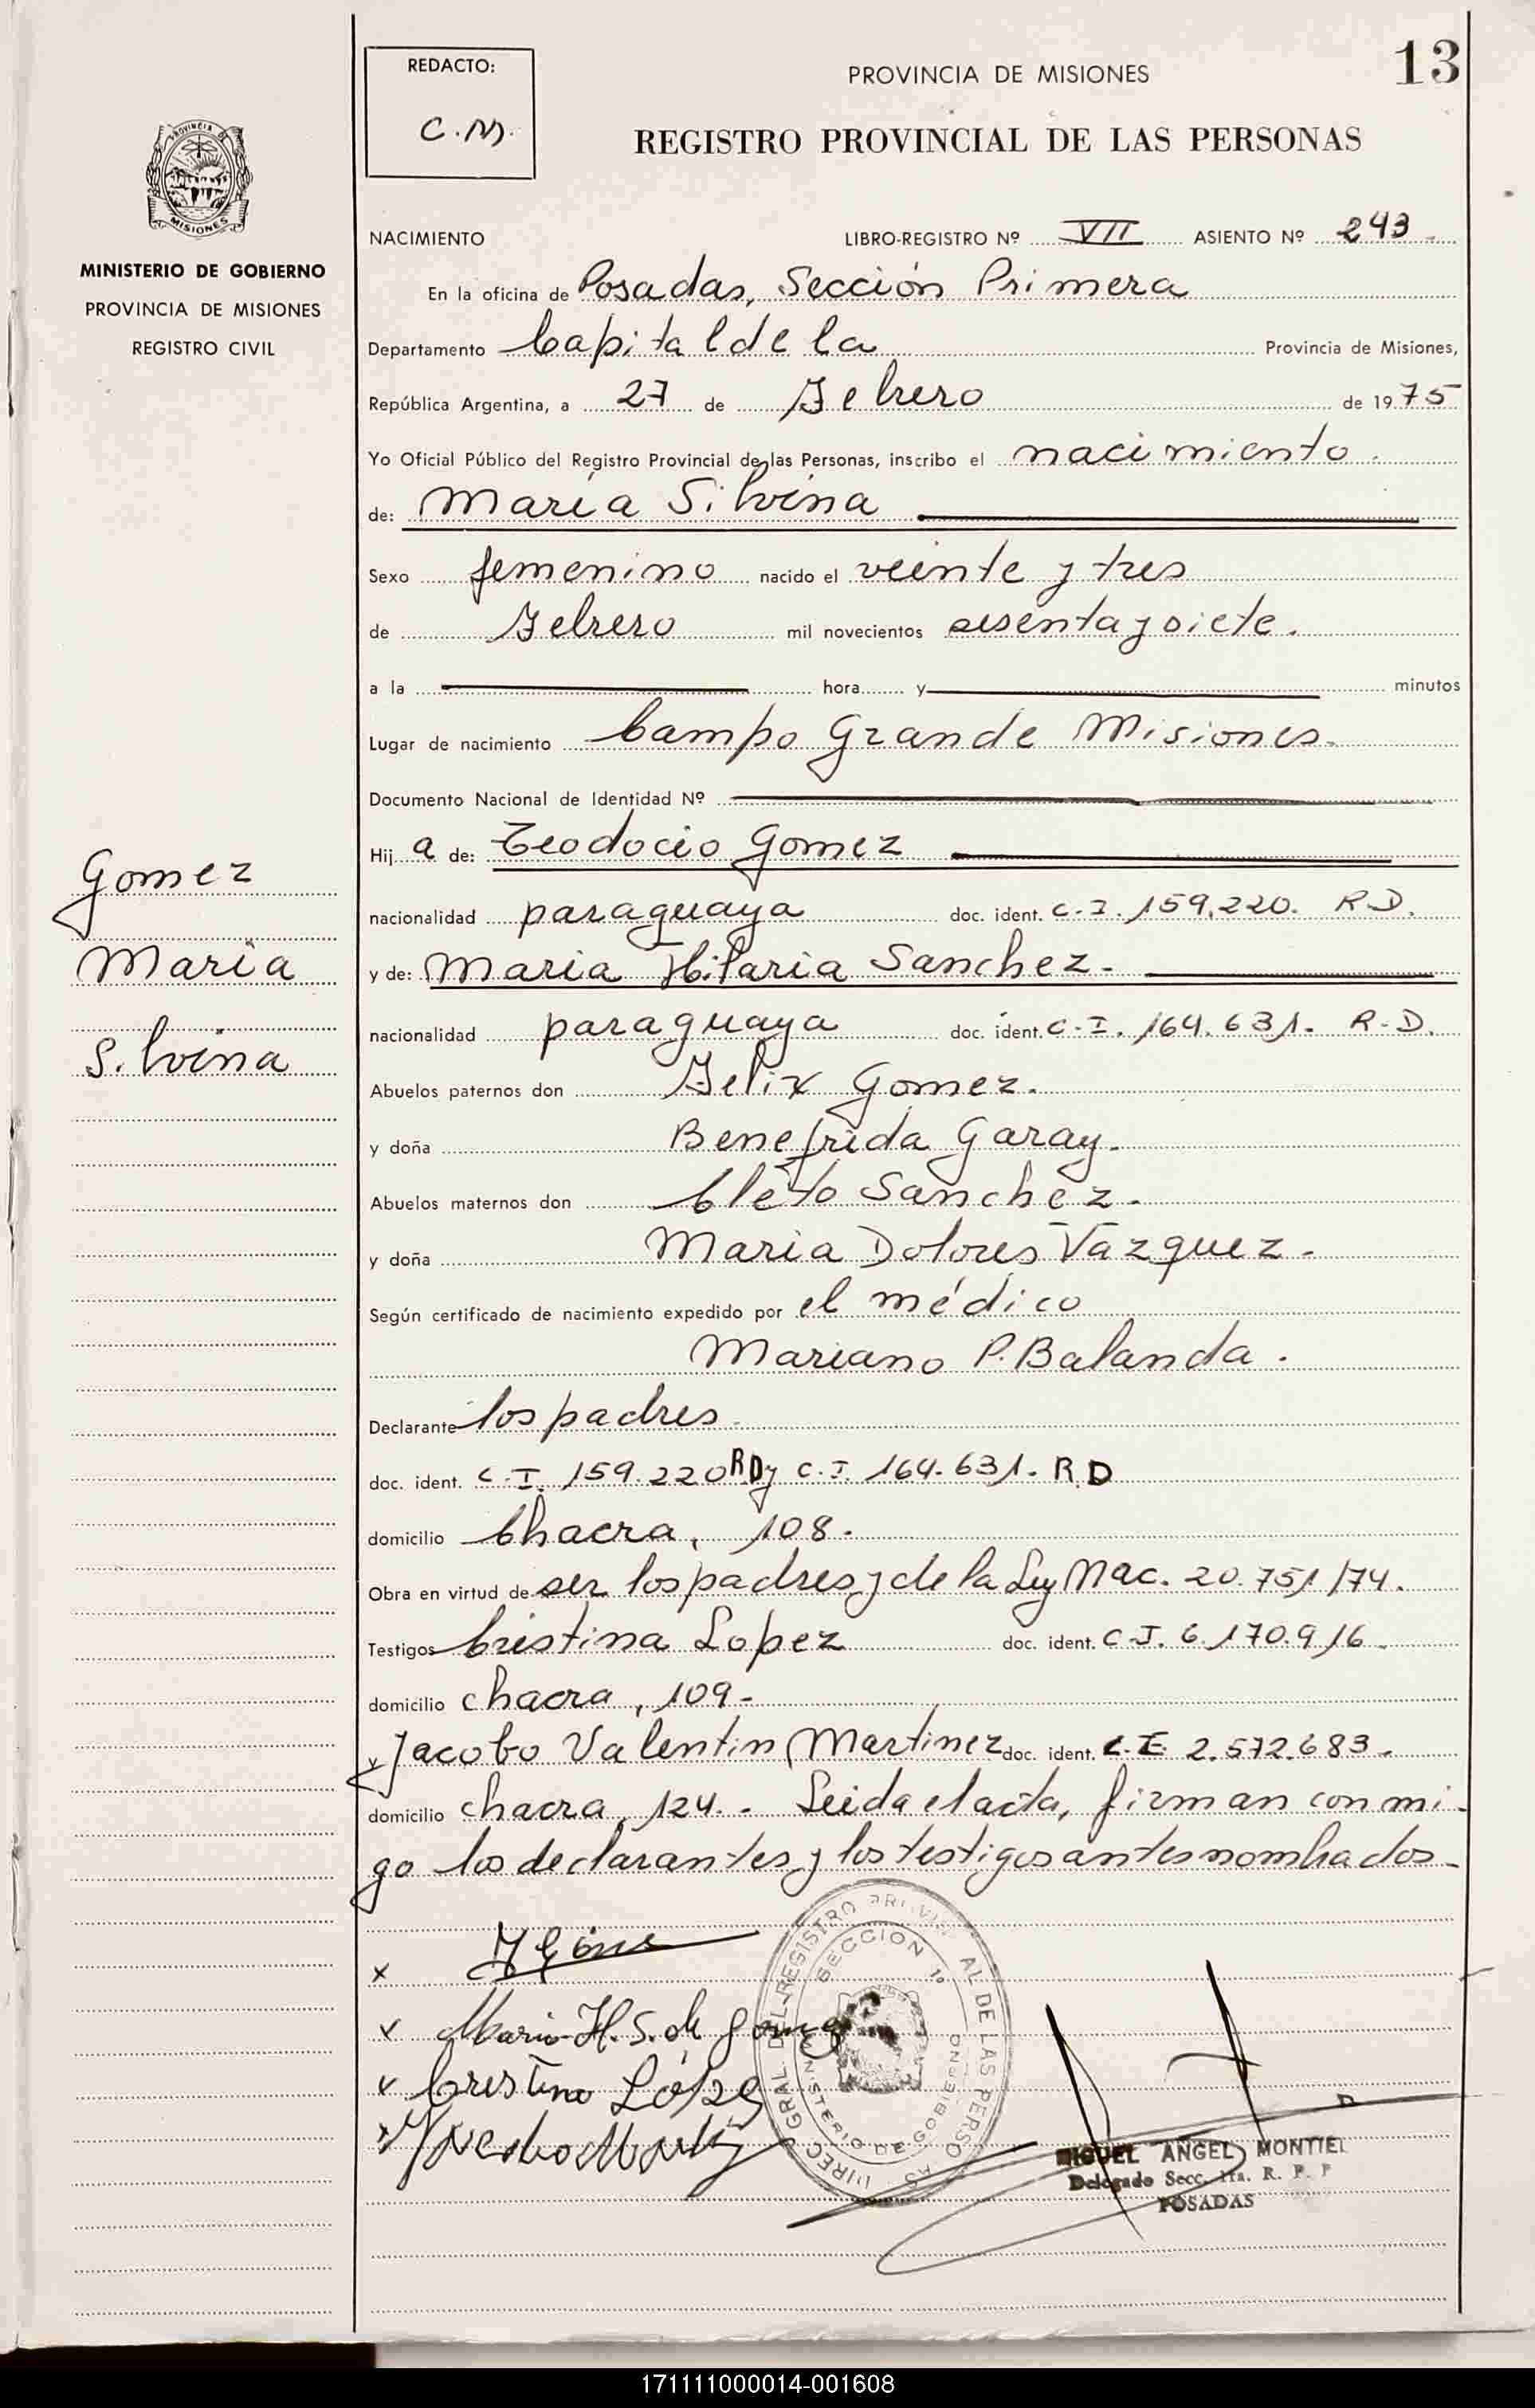 13
REDACTO:
C.M.
PROVINCIA DE MISIONES
REGISTRO PROVINCIAL DE LAS PERSONAS
PROVINCIA DE
MISIONES
MINISTERIO DE GOBIERNO
PROVINCIA DE MISIONES
REGISTRO CIVIL
NACIMIENTO LIBRO-REGISTRO Nº VII ASIENTO Nº 243
En la oficina de Posadas, Sección Primera
Departamento Capital de la Provincia de Misiones,
República Argentina, a 27 de Febrero de 1975
Yo Oficial Público del Registro Provincial de las Personas, inscribo el nacimiento.
de: María Silvina
Sexo femenino nacido el veinte y tres
de Febrero mil novecientos sesenta y siete.
a la hora y minutos
Lugar de nacimiento Campo Grande Misiones.
Documento Nacional de Identidad Nº
Hij a de: Teodocio Gomez
nacionalidad paraguaya doc. ident. C.I. 159.220. R.D.
y de: Maria Hilaria Sanchez.
nacionalidad paraguaya doc. ident. C.I. 164.631. R.D.
Abuelos paternos don Felix Gomez.
y doña Benefrida Garay.
Abuelos maternos don Cleto Sanchez.
y doña Maria Dolores Vazquez.
Según certificado de nacimiento expedido por el médico
Mariano P. Balanda.
Declarante los padres.
doc. ident. C.I. 159.220 RD y C.I. 164.631. R.D
domicilio Chacra, 108.
Obra en virtud de ser los padres y de la Ley Nac. 20.751/74.
Testigos Cristina Lopez doc. ident. C.I. 6.170.916
domicilio chacra, 109-
y Jacobo Valentin Martinez doc. ident. C.I. 2.572.683.
domicilio chacra, 124.- Leida el acta, firman conmi-
go los declarantes y los testigos antes nombrados.
Gomez
María
Silvina
x
x Maria H. S. de Gomez
x Cristina López
x
DIREC. GRAL. DEL REGISTRO PROVINCIAL DE LAS PERSONAS
SECCION 1º
MINISTERIO DE GOBIERNO
MIGUEL ANGEL MONTIEL
Delegado Secc. 1ra. R. P. P
POSADAS
171111000014-001608